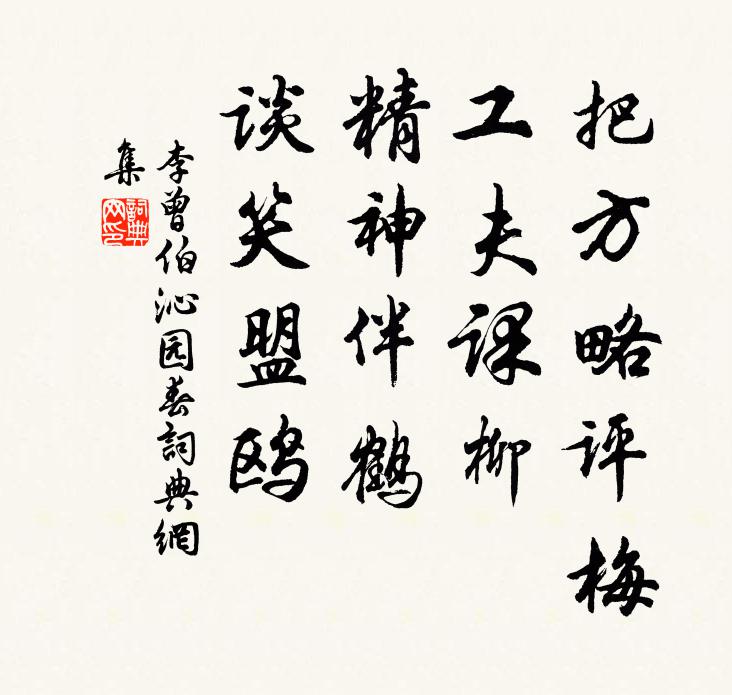 把方略评梅
工夫课柳
精神伴鹤
谈笑盟鸥
李曾伯沁园春詞典網
集
詞典
网印